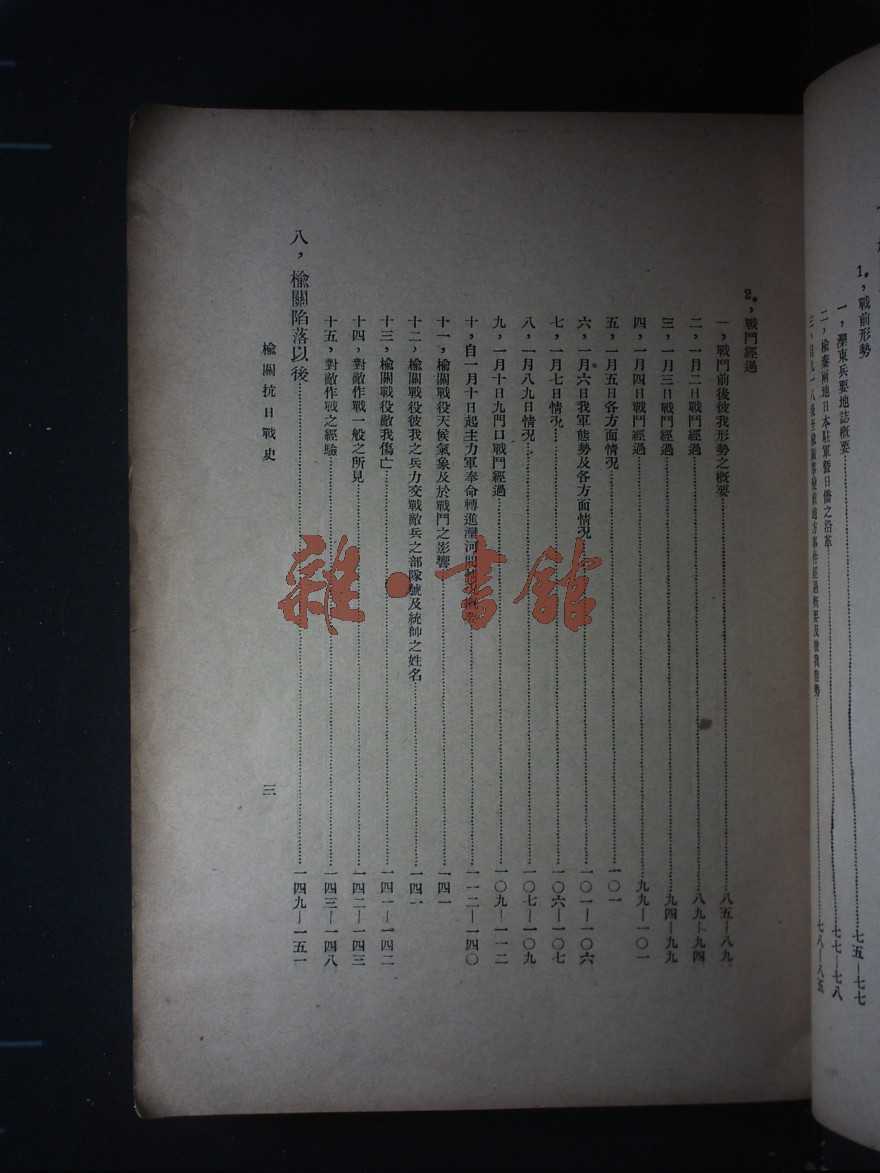 1.，戰前形勢
一，灤東兵要地誌概要……七五—七七
二，榆秦兩地日本駐軍暨日僑之沿革……七七—七八
三，自九一八後至榆關事變前地方事件經過概要及彼我態勢……七八—八五
2.，戰鬥經過
一，戰鬥前後彼我形勢之概要……八五—八九
二，一月二日戰鬥經過……八九—九四
三，一月三日戰鬥經過……九四—九九
四，一月四日戰鬥經過……九九—一〇一
五，一月五日各方面情況……一〇一
六，一月六日我軍態勢及各方面情況……一〇一—一〇六
七，一月七日情況……一〇六—一〇七
八，一月八九日情況……一〇七—一〇九
九，一月十日九門口戰鬥經過……一〇九—一一二
十，自一月十日起主力軍奉命轉進灤河……一一二—一四〇
十一，榆關戰役天候氣象及於戰鬥之影響……一四一
十二，榆關戰役彼我之兵力交戰敵兵之部隊號及統帥之姓名……一四一
十三，榆關戰役敵我傷亡……一四一—一四二
十四，對敵作戰一般之所見……一四二—一四三
十五，對敵作戰之經驗……一四三—一四八
八，榆關陷落以後……一四九—一五一
榆關抗日戰史
三
雜·書館